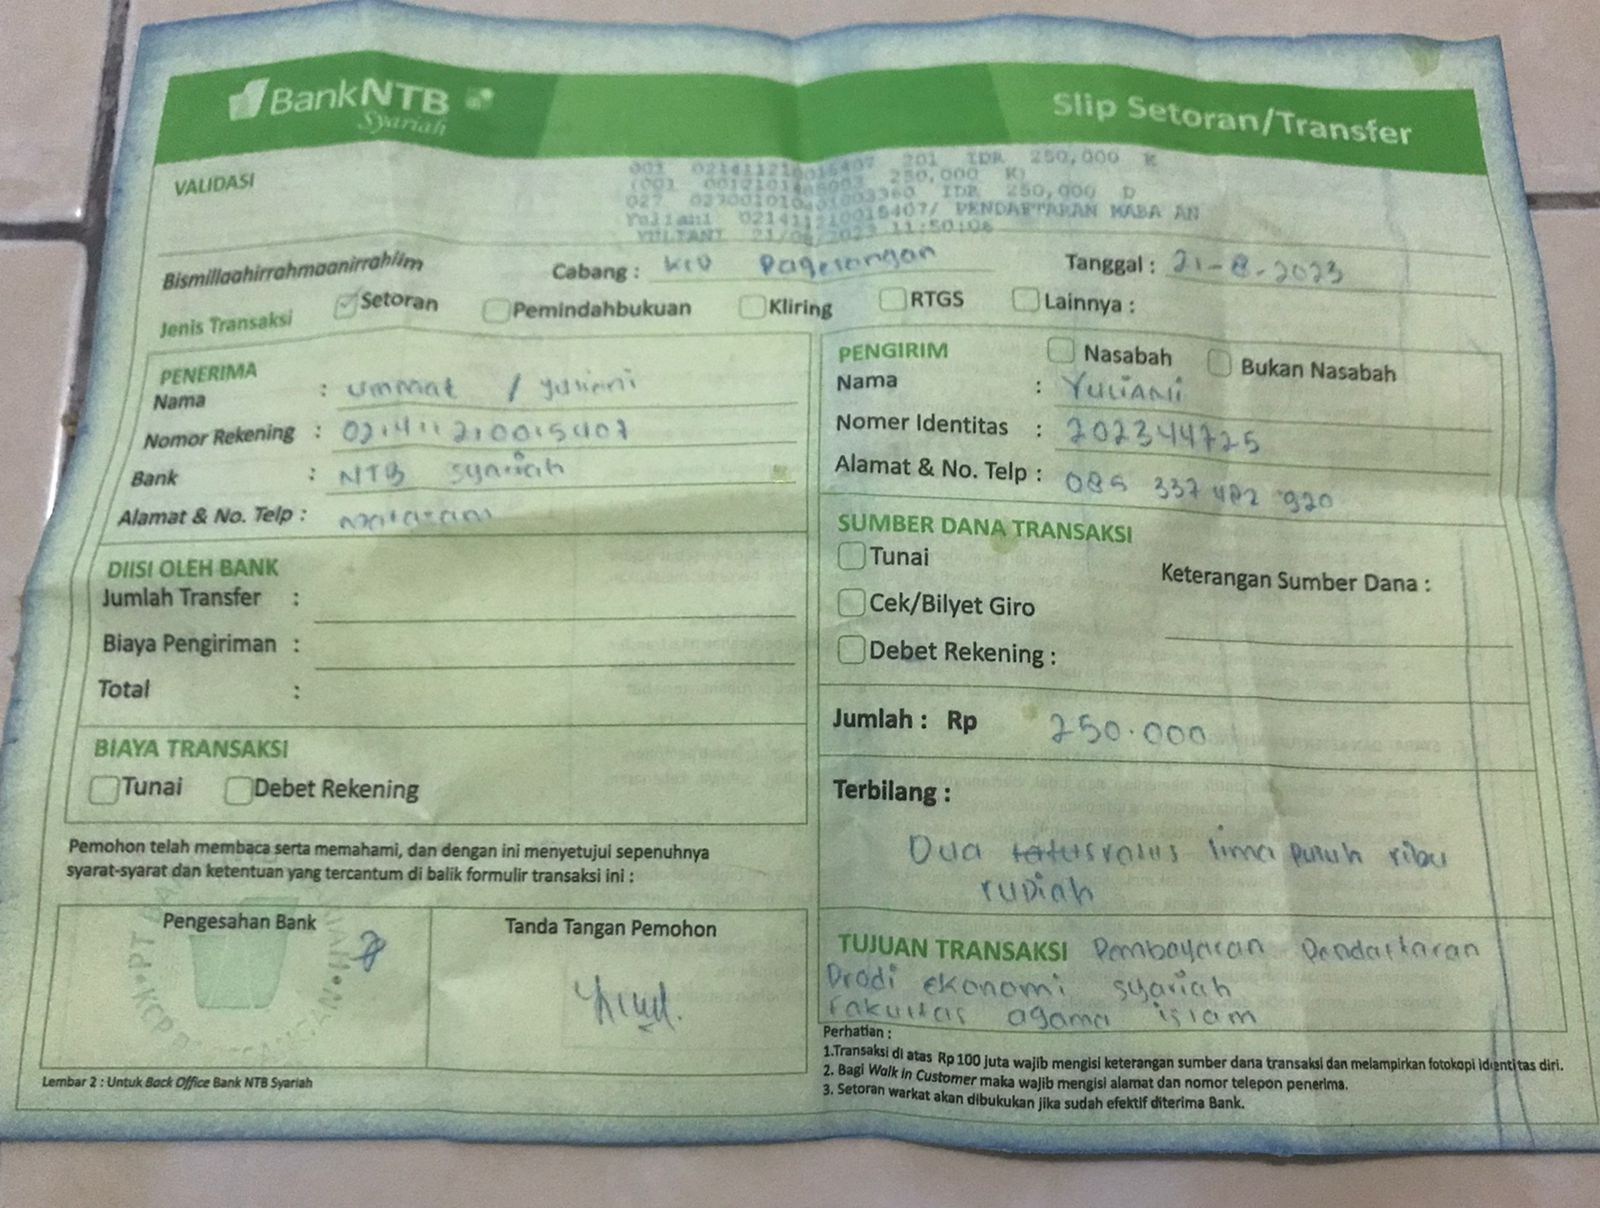 BankNTB
Syariah
Slip Setoran/Transfer
VALIDASI
201 IDR 250,000 K
250,000 K)
IDR 250,000 D
Yuliani 021411210015407/ PENDAFTARAN MABA AN
YULIANI 21/08/2023 11:50:06
Bismillaahirrahmaanirrahiim
Cabang : KCP Pagesangan
Tanggal : 21-8-2023
Jenis Transaksi Setoran Pemindahbukuan Kliring RTGS Lainnya :
PENERIMA
Nama : ummat / yuliani
Nomor Rekening : 021411210015407
Bank : NTB syariah
Alamat & No. Telp : mataram
PENGIRIM Nasabah Bukan Nasabah
Nama : YULIANI
Nomer Identitas : 202344725
Alamat & No. Telp : 085 337 482 920
DIISI OLEH BANK
Jumlah Transfer :
Biaya Pengiriman :
Total :
SUMBER DANA TRANSAKSI
Tunai
Keterangan Sumber Dana :
Cek/Bilyet Giro
Debet Rekening :
BIAYA TRANSAKSI
Tunai Debet Rekening
Jumlah : Rp 250.000
Terbilang :
Dua ratus lima puluh ribu
rupiah
Pemohon telah membaca serta memahami, dan dengan ini menyetujui sepenuhnya
syarat-syarat dan ketentuan yang tercantum di balik formulir transaksi ini :
Pengesahan Bank
Tanda Tangan Pemohon
TUJUAN TRANSAKSI Pembayaran Pendaftaran
Prodi ekonomi syariah
Fakultas agama islam
Perhatian :
1.Transaksi di atas Rp 100 juta wajib mengisi keterangan sumber dana transaksi dan melampirkan fotokopi identitas diri.
2. Bagi Walk in Customer maka wajib mengisi alamat dan nomor telepon penerima.
3. Setoran warkat akan dibukukan jika sudah efektif diterima Bank.
Lembar 2 : Untuk Back Office Bank NTB Syariah